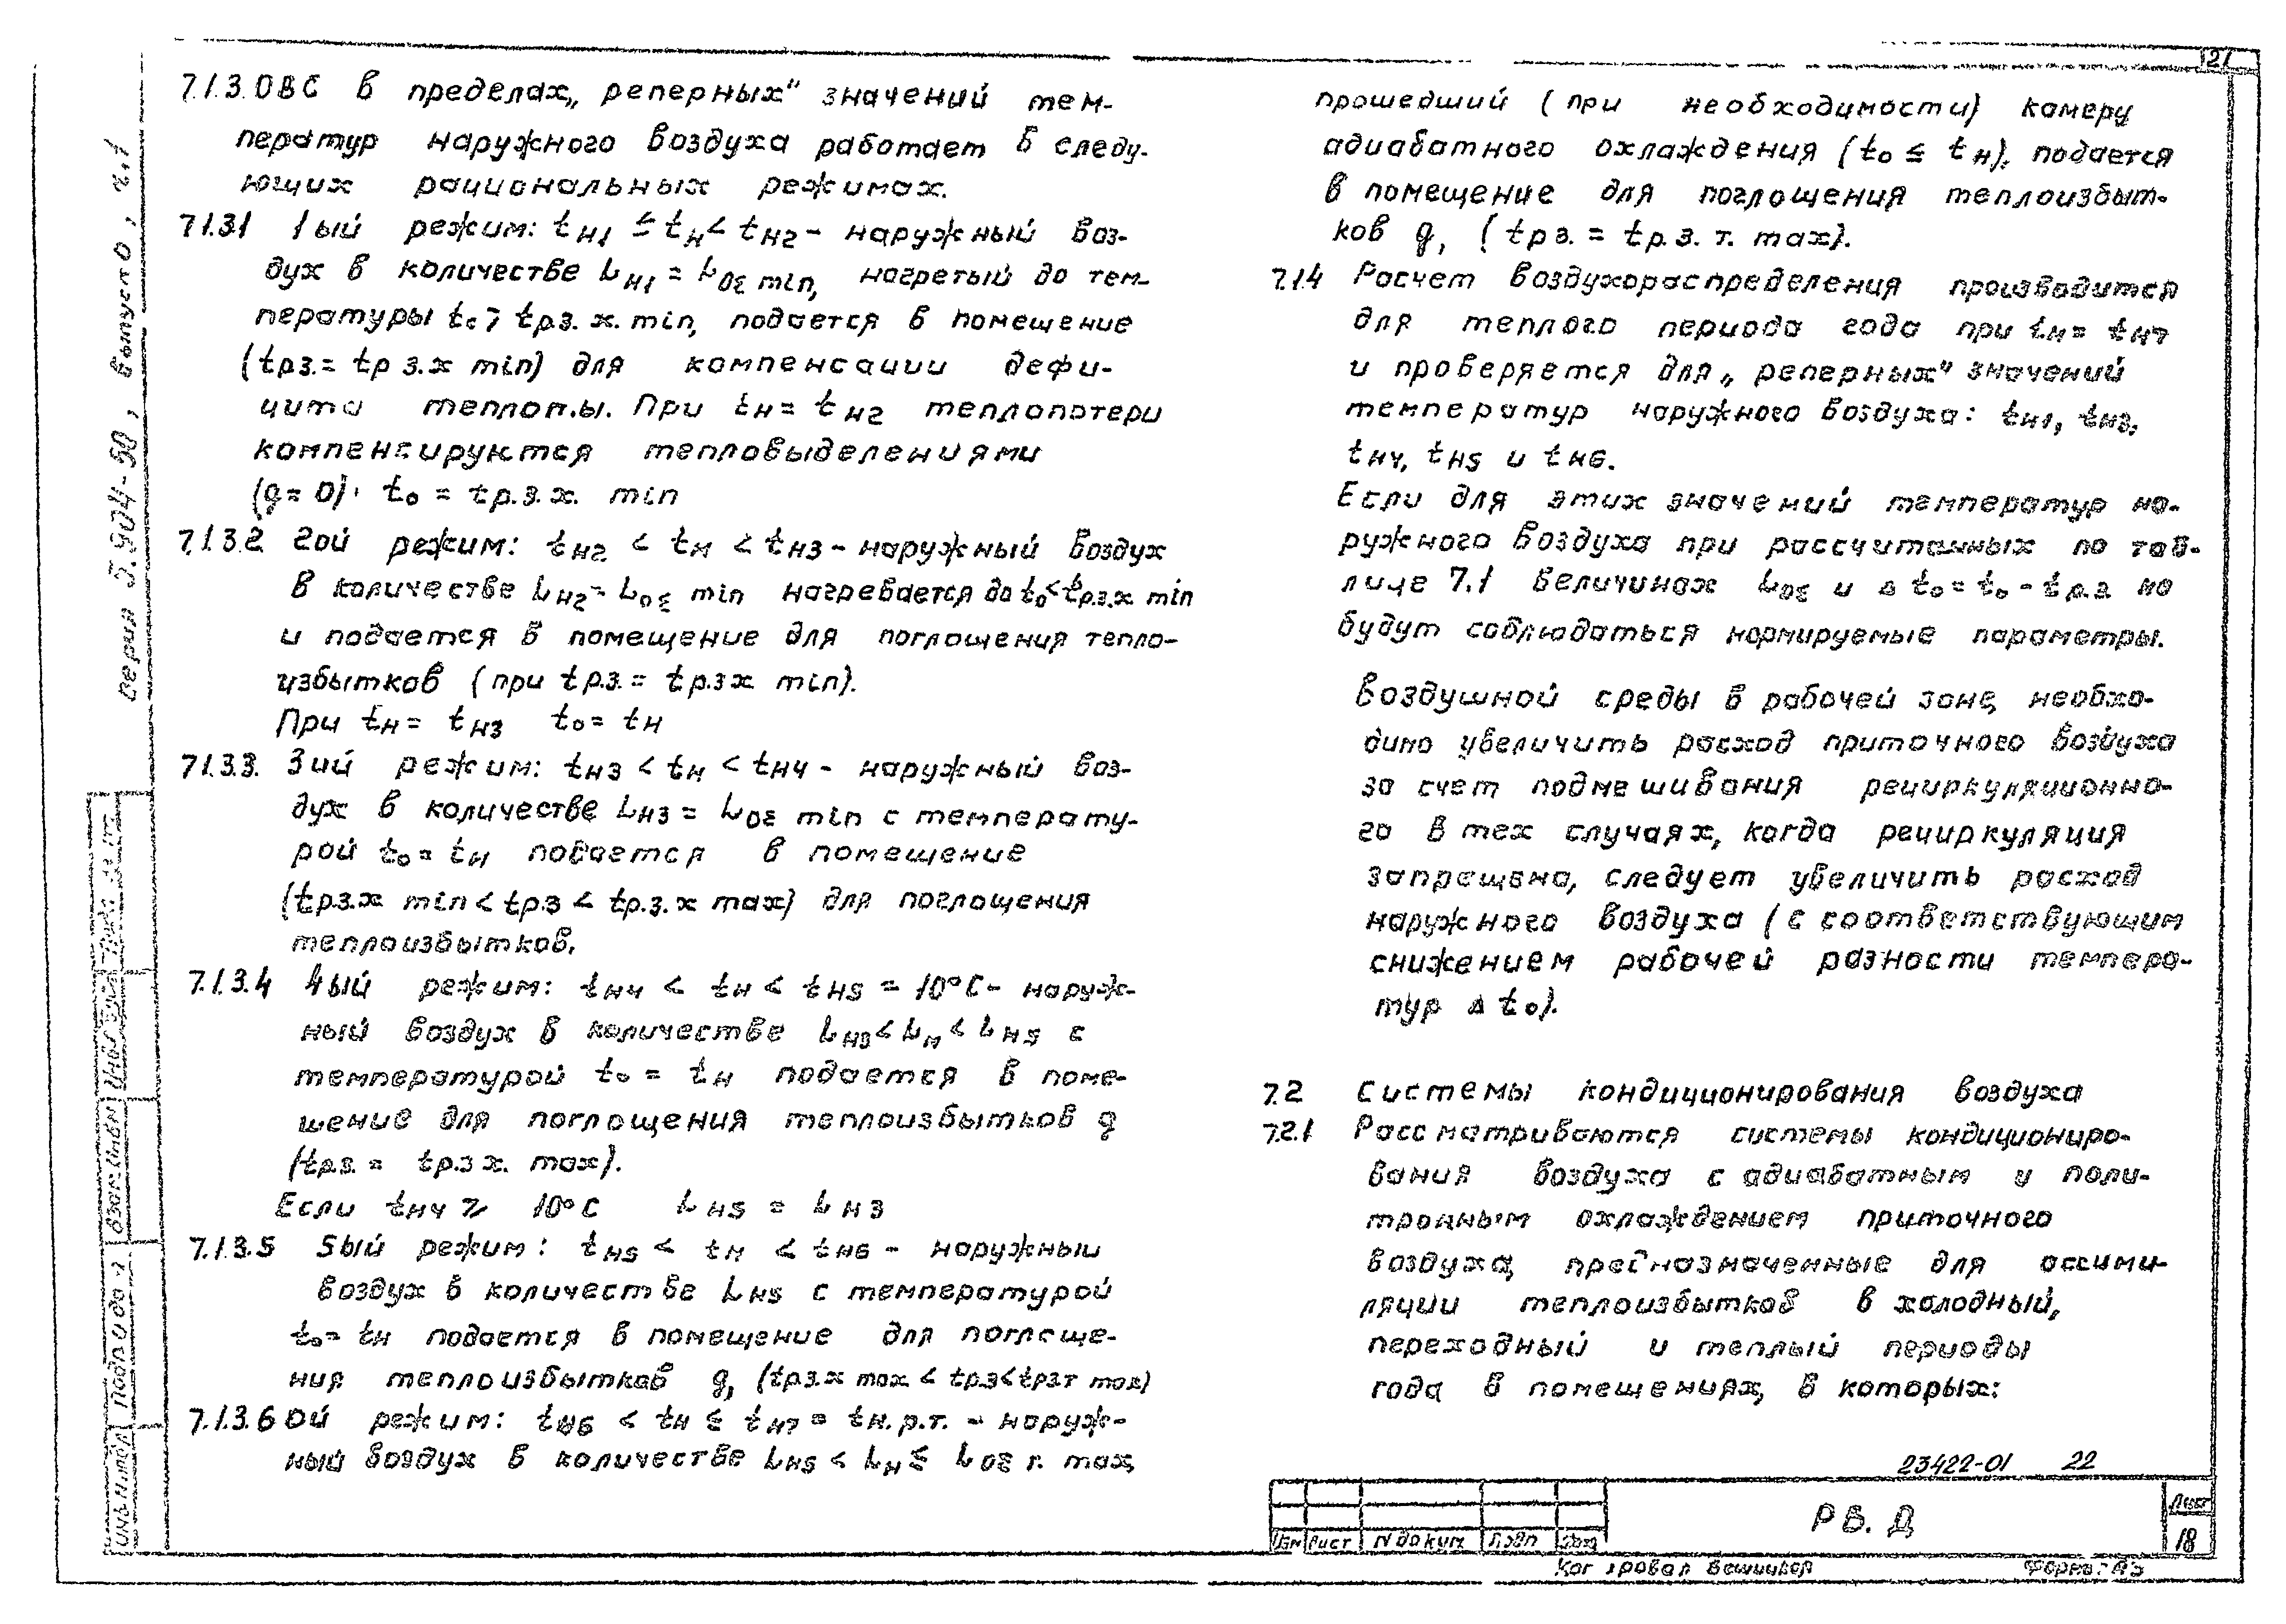 21
7.1.3. ОВС в пределах „реперных" значений тем-
ператур наружного воздуха работает в следу-
ющих рациональных режимах.
7.1.3.1 1ый режим: tн1 ≤ tн < tн2 - наружный воз-
дух в количестве Lн1 = LОΣ min, нагретый до тем-
пературы to > tр.з.х. min, подается в помещение
(tр.з. = tр.з.х min) для компенсации дефи-
цита теплоты. При tн = tн2 теплопотери
компенсируются тепловыделениями
(q = 0). to = tр.з.х. min
7.1.3.2 2ой режим: tн2 < tн < tн3 - наружный воздух
в количестве Lн2 = LОΣ min нагревается до to < tр.з.х min
и подается в помещение для поглощения тепло-
избытков (при tр.з. = tр.з.х min).
При tн = tн3 to = tн
7.1.3.3. 3ий режим: tн3 < tн < tн4 - наружный воз-
дух в количестве Lн3 = LОΣ min с температу-
рой to = tн подается в помещение
(tр.з.х min < tр.з < tр.з.х max) для поглощения
теплоизбытков.
7.1.3.4 4ый режим: tн4 < tн < tн5 = 10°С - наруж-
ный воздух в количестве Lн3 < Lн < Lн5 с
температурой to = tн подается в поме-
щение для поглощения теплоизбытков q
(tр.з. = tр.з.х. max).
Если tн4 ≥ 10°С Lн5 = Lн3
7.1.3.5 5ый режим: tн5 < tн < tн6 - наружный
воздух в количестве Lн5 с температурой
to = tн подается в помещение для поглоще-
ния теплоизбытков q, (tр.з.х max < tр.з < tр.з.т max)
7.1.3.6 ой режим: tн6 < tн ≤ tн7 = tн.р.т. - наруж-
ный воздух в количестве Lн5 < Lн ≤ LОΣ т. max,
прошедший (при необходимости) камеру
адиабатного охлаждения (to ≤ tн), подается
в помещение для поглощения теплоизбыт-
ков q, (tр.з. = tр.з.т. max).
7.1.4 Расчет воздухораспределения производится
для теплого периода года при tн = tн7
и проверяется для „реперных" значений
температур наружного воздуха: tн1, tн3,
tн4, tн5 и tн6.
Если для этих значений температур на-
ружного воздуха при рассчитанных по таб-
лице 7.1 величинах LОΣ и Δto = to - tр.з. не
будут соблюдаться нормируемые параметры.
воздушной среды в рабочей зоне, необхо-
димо увеличить расход приточного воздуха
за счет подмешивания рециркуляционно-
го в тех случаях, когда рециркуляция
запрещена, следует увеличить расход
наружного воздуха (с соответствующим
снижением рабочей разности темпера-
тур Δto).
7.2 Системы кондиционирования воздуха
7.2.1 Рассматриваются системы кондициониро-
вания воздуха с адиабатным и поли-
тропным охлаждением приточного
воздуха, предназначенные для ассими-
ляции теплоизбытков в холодный,
переходный и теплый периоды
года в помещениях, в которых:
23422-01 22
РВ. Д
Лист
18
Изм Лист N докум. Подп Дата
Копировал Формат А3
Серия 5.904-50, выпуск 0, ч.1
Взам. инв N
Подп и дата
Инв N подл